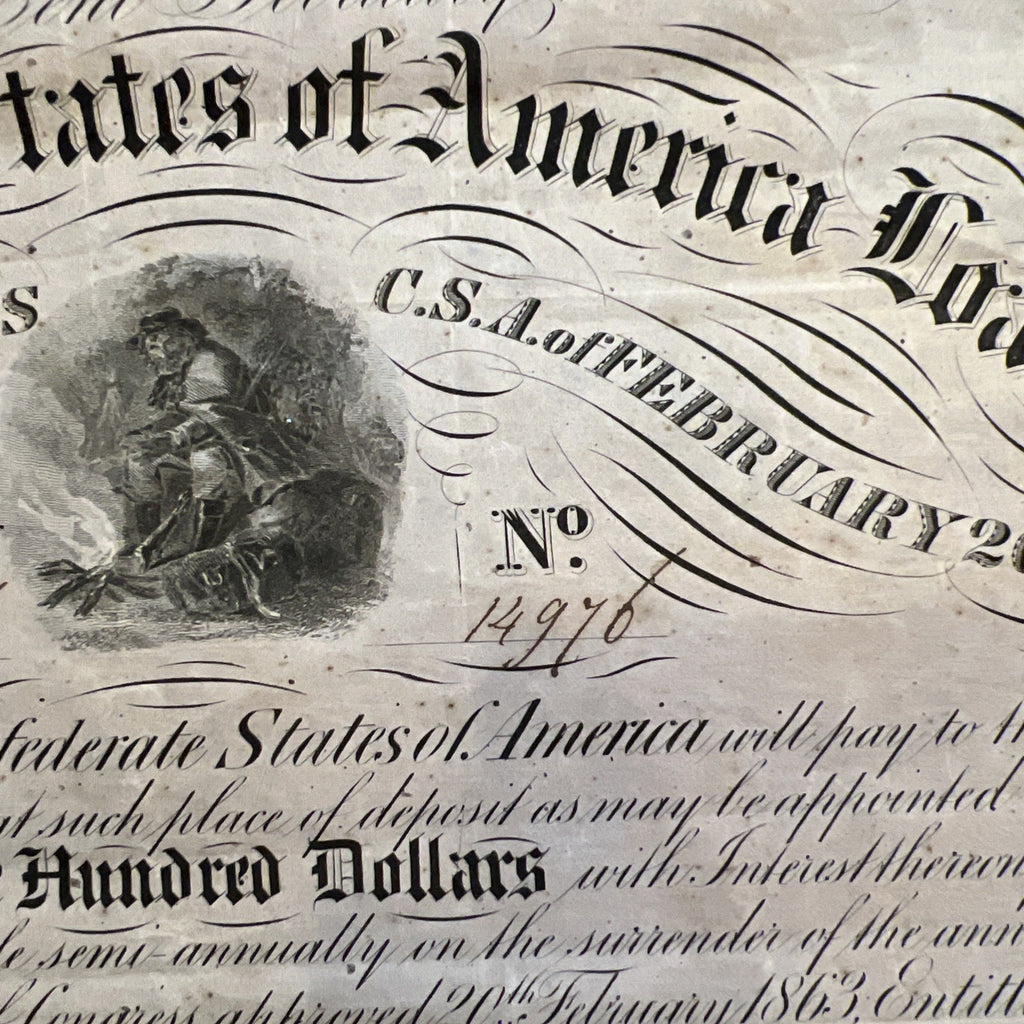 tates of America Loa
S C.S.A. of FEBRUARY 20
No.
14976
federate States of America will pay to th
at such place of deposit as may be appointed
Hundred Dollars with Interest thereon
le semi-annually on the surrender of the ann
Congress approved 20th February 1863, Entitl